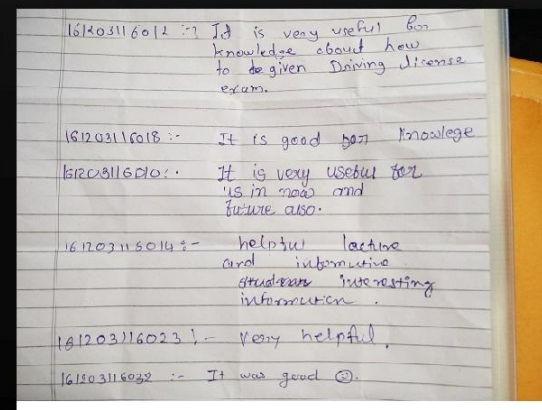 161203116012 :- It is very useful for
knowledge about how
to be given Driving license
exam.
161203116018 :- It is good for Knowlege
161203116010 :- It is very useful for
us in now and
future also.
161203116014 :- helpful lacture
and informative
interesting
information .
161203116023 :- Very helpful.
161203116032 :- It was good ☺.